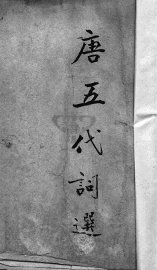 唐五代詞選